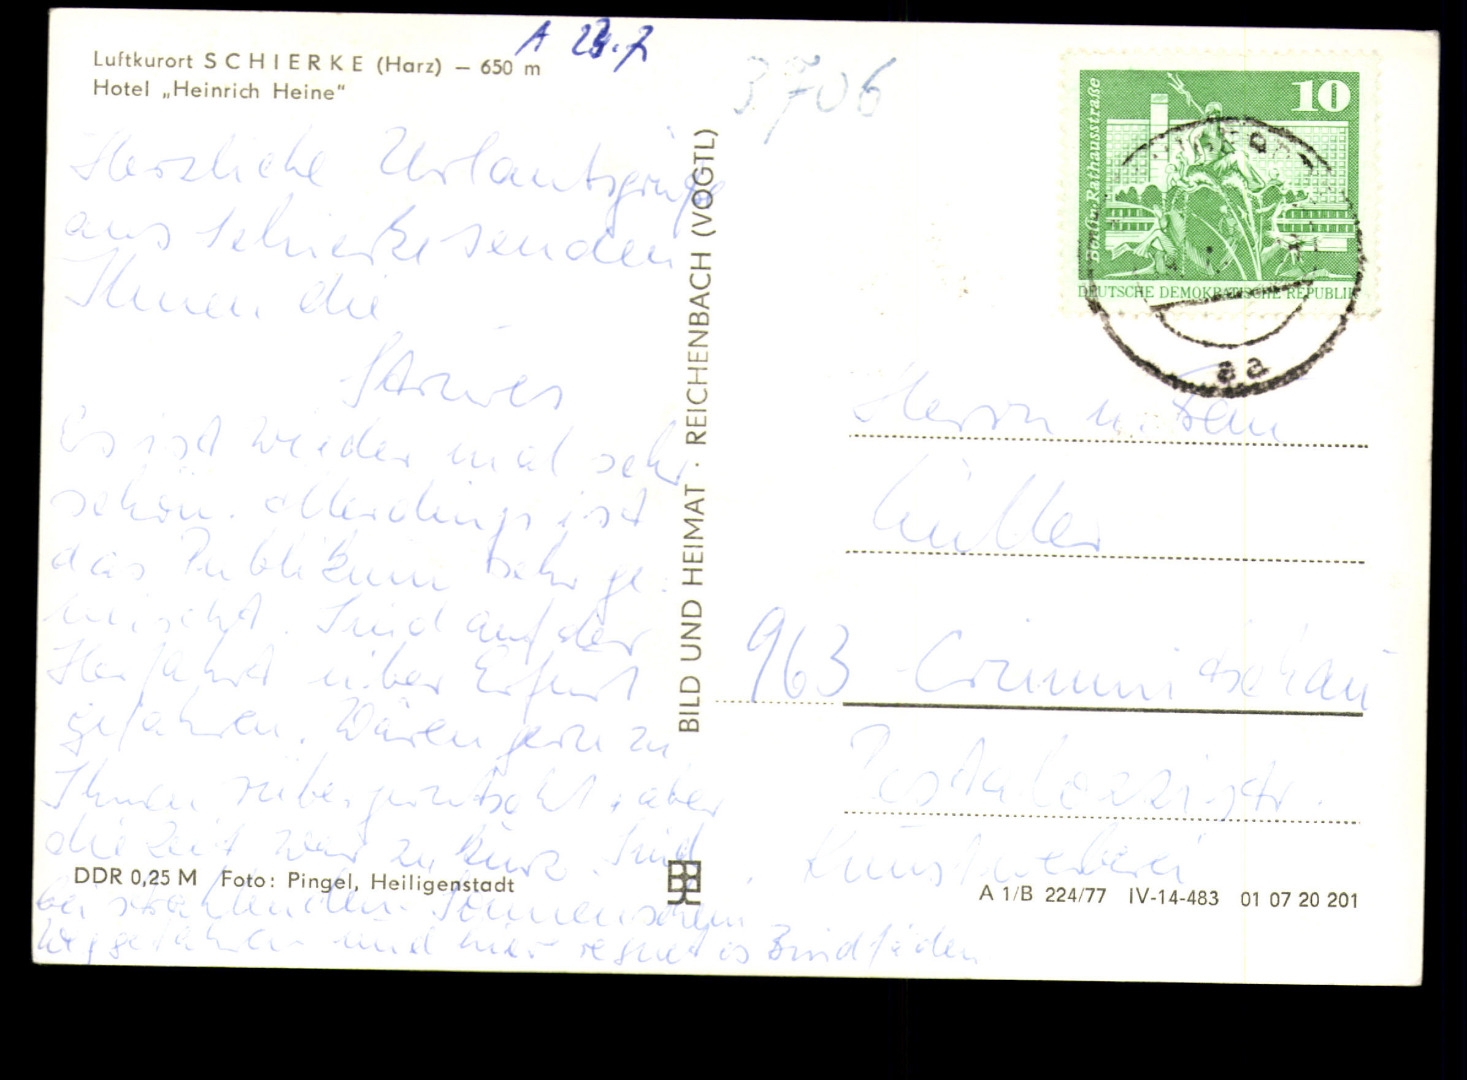 A 23.7
3706
Luftkurort SCHIERKE (Harz) – 650 m
Hotel „Heinrich Heine“
Herzliche Urlaubsgrüße
aus Schierke senden
Ihnen die
Es ist wieder mal sehr
schön. Allerdings ist
das Publikum sehr ge-
mischt. Sind auf der
Herfahrt über Erfurt
gefahren. Wären gern zu
Ihnen rübergerutscht, aber
die Zeit war zu kurz. Sind
bei strahlenden Sonnenschein
weggefahren und hier regnet es Bindfäden
DDR 0,25 M Foto: Pingel, Heiligenstadt
BILD UND HEIMAT · REICHENBACH (VOGTL)
10
Berlin, Rathausstraße
DEUTSCHE DEMOKRATISCHE REPUBLIK
aa
Herrn u. Frau
963 Crimmitschau
Pestalozzistr.
Kunstweberei
A 1/B 224/77 IV-14-483 01 07 20 201